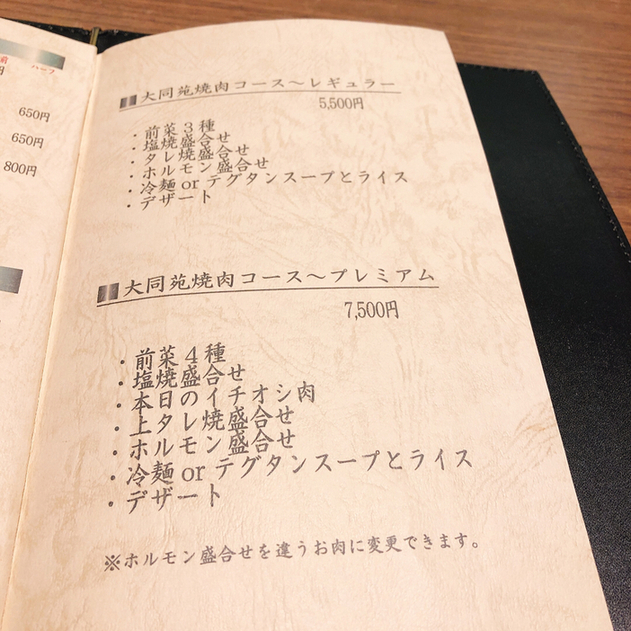 ハーフ
円
650円
650円
800円
大同苑焼肉コース～レギュラー
5,500円
・前菜３種
・塩焼盛合せ
・タレ焼盛合せ
・ホルモン盛合せ
・冷麺 or テグタンスープとライス
・デザート
大同苑焼肉コース～プレミアム
7,500円
・前菜４種
・塩焼盛合せ
・本日のイチオシ肉
・上タレ焼盛合せ
・ホルモン盛合せ
・冷麺 or テグタンスープとライス
・デザート
※ホルモン盛合せを違うお肉に変更できます。